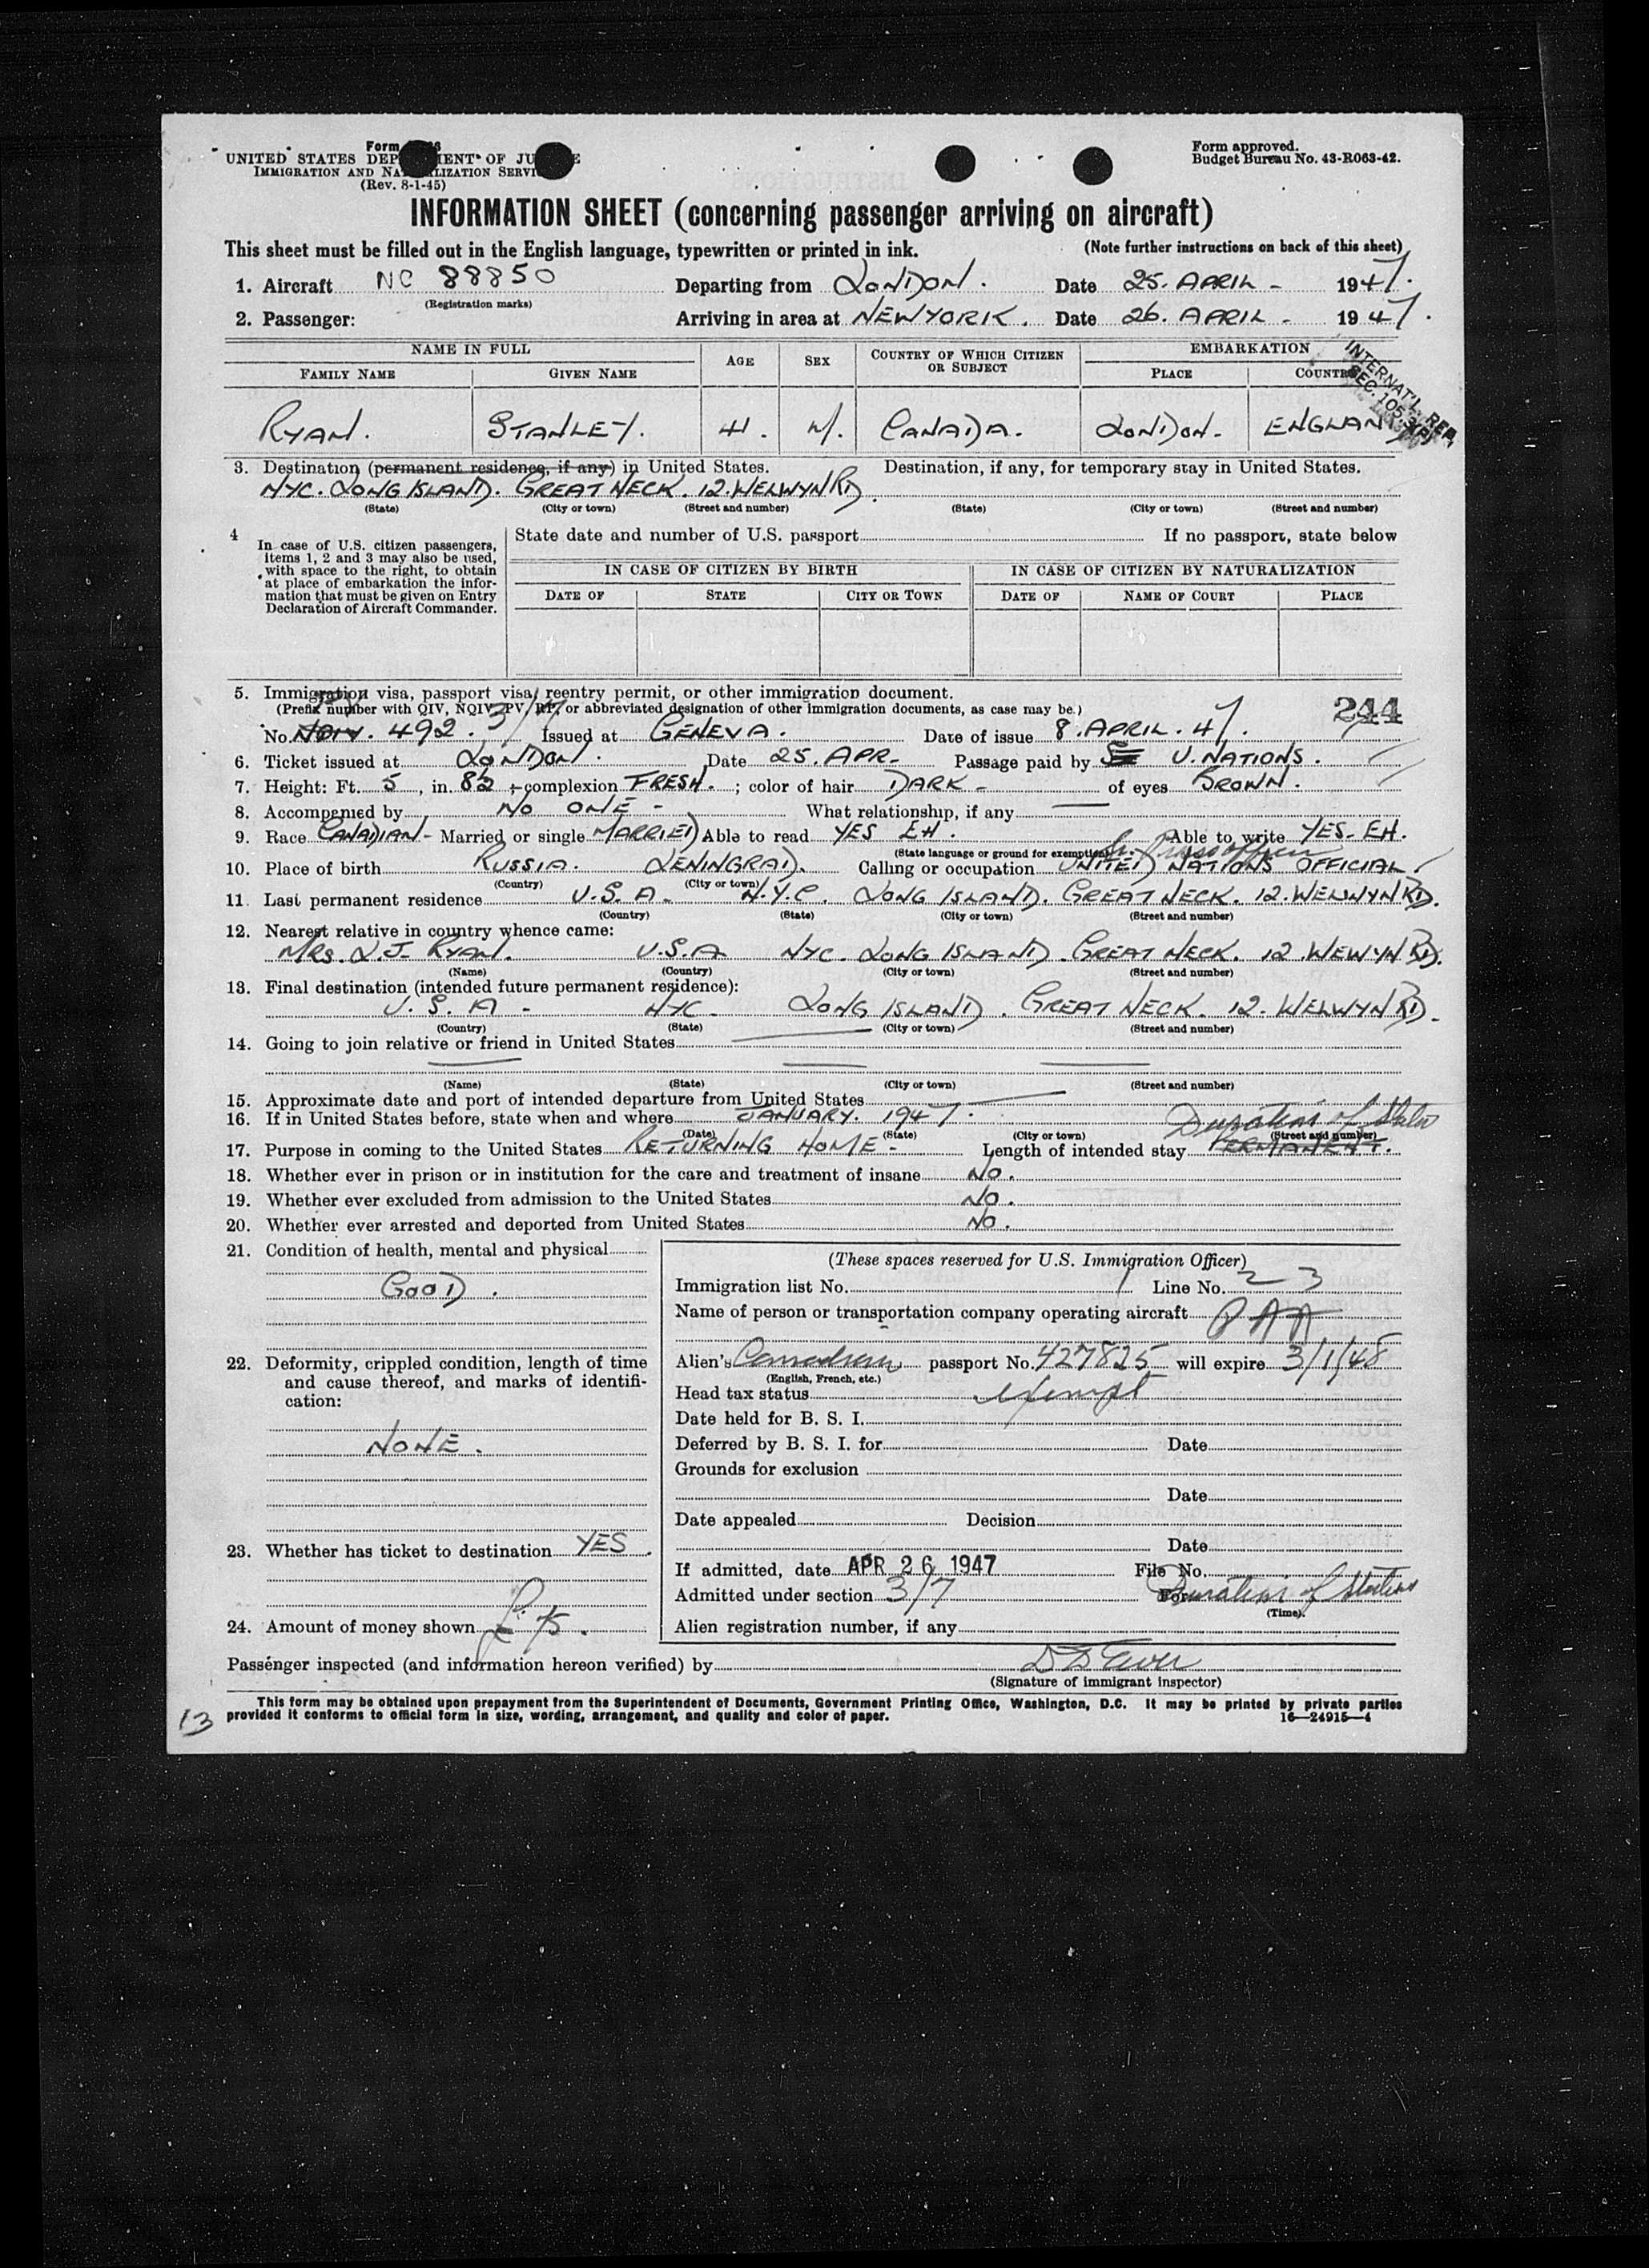 Form
UNITED STATES DEP MENT OF JU E
IMMIGRATION AND NA LIZATION SERVI
(Rev. 8-1-45)
Form approved.
Budget Bureau No. 43-R063-42.
INFORMATION SHEET (concerning passenger arriving on aircraft)
This sheet must be filled out in the English language, typewritten or printed in ink. (Note further instructions on back of this sheet)
1. Aircraft NC 88850 Departing from LONDON. Date 25. APRIL - 1947.
(Registration marks)
2. Passenger: Arriving in area at NEW YORK. Date 26. APRIL - 1947.
NAME IN FULL AGE SEX COUNTRY OF WHICH CITIZEN OR SUBJECT EMBARKATION
FAMILY NAME GIVEN NAME PLACE COUNTRY
INTERNAT'L. REP.
SEC. 105.3(P)
RYAN. STANLEY. 41. M. CANADA. LONDON. ENGLAND
3. Destination (permanent residence, if any) in United States. Destination, if any, for temporary stay in United States.
NYC. LONG ISLAND. GREAT NECK. 12. WELWYN RD.
(State) (City or town) (Street and number) (State) (City or town) (Street and number)
4 In case of U.S. citizen passengers, items 1, 2 and 3 may also be used, with space to the right, to obtain at place of embarkation the information that must be given on Entry Declaration of Aircraft Commander.
State date and number of U.S. passport If no passport, state below
IN CASE OF CITIZEN BY BIRTH IN CASE OF CITIZEN BY NATURALIZATION
DATE OF STATE CITY OR TOWN DATE OF NAME OF COURT PLACE
5. Immigration visa, passport visa, reentry permit, or other immigration document.
(Prefix number with QIV, NQIV, PV, RP, or abbreviated designation of other immigration documents, as case may be.)
244
No. 492. 3/7 Issued at GENEVA. Date of issue 8. APRIL. 47.
6. Ticket issued at LONDON. Date 25. APR. Passage paid by U. NATIONS.
7. Height: Ft. 5, in. 8½; complexion FRESH.; color of hair DARK - of eyes BROWN.
8. Accompanied by NO ONE - What relationship, if any —
9. Race CANADIAN - Married or single MARRIED Able to read YES EH. Able to write YES. EH.
(State language or ground for exemption) Sr. Press officer
10. Place of birth RUSSIA. LENINGRAD. Calling or occupation UNITED NATIONS OFFICIAL
(Country) (City or town)
11. Last permanent residence U.S.A. N.Y.C. LONG ISLAND. GREAT NECK. 12. WELWYN RD.
(Country) (State) (City or town) (Street and number)
12. Nearest relative in country whence came:
MRS. L.J. RYAN. U.S.A NYC. LONG ISLAND. GREAT NECK. 12 WEWYN RD.
(Name) (Country) (City or town) (Street and number)
13. Final destination (intended future permanent residence):
U.S.A - NYC - LONG ISLAND. GREAT NECK. 12. WELWYN RD.
(Country) (State) (City or town) (Street and number)
14. Going to join relative or friend in United States —
— — —
(Name) (State) (City or town) (Street and number)
15. Approximate date and port of intended departure from United States —
16. If in United States before, state when and where JANUARY. 1947.
(Date) (State) (City or town) (Street and number)
Duration of Status
17. Purpose in coming to the United States RETURNING HOME - Length of intended stay PERMANENT.
18. Whether ever in prison or in institution for the care and treatment of insane NO.
19. Whether ever excluded from admission to the United States NO.
20. Whether ever arrested and deported from United States NO.
21. Condition of health, mental and physical
GOOD.
22. Deformity, crippled condition, length of time and cause thereof, and marks of identification:
NONE.
23. Whether has ticket to destination YES.
24. Amount of money shown
(These spaces reserved for U.S. Immigration Officer)
Immigration list No. Line No. 23
Name of person or transportation company operating aircraft PAA
Alien's Canadian passport No. 427825 will expire 3/1/48
(English, French, etc.)
Head tax status exempt
Date held for B. S. I.
Deferred by B. S. I. for Date
Grounds for exclusion
Date
Date appealed Decision
Date
If admitted, date APR 26 1947 File No.
Admitted under section 3/7 For Duration of Status
(Time)
Alien registration number, if any
Passenger inspected (and information hereon verified) by
(Signature of immigrant inspector)
This form may be obtained upon prepayment from the Superintendent of Documents, Government Printing Office, Washington, D.C. It may be printed by private parties
provided it conforms to official form in size, wording, arrangement, and quality and color of paper. 16—24915-4
13